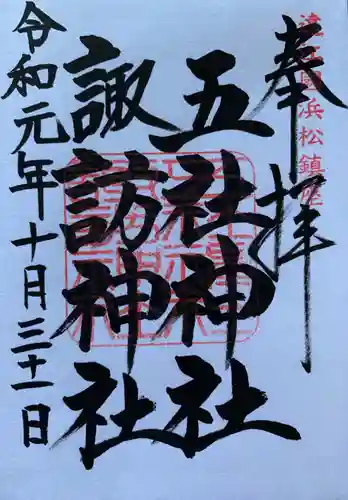 奉拝
遠江國浜松鎮座
五社神社
諏訪神社
令和元年十月三十一日